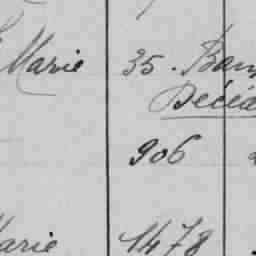 Marie 35. Ban
Décéd
906
Marie 1478